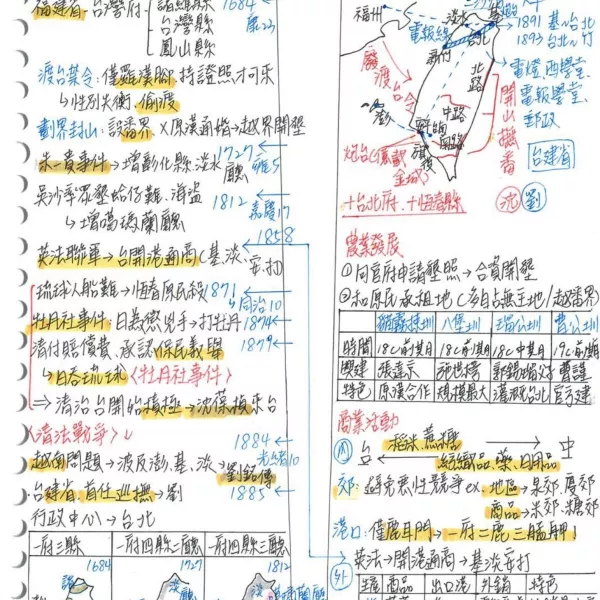 福建省-台灣府 諸羅縣 1684
台灣縣 康23
鳳山縣
渡台禁令:僅羅漢腳、持證照才可來
↳性別失衡、偷渡
劃界封山:設番界、×原漢通婚→越界開墾
朱一貴事件→增彰化縣、淡水廳 1727 雍5
吳沙率眾墾蛤仔難、海盜 1812
↳增噶瑪蘭廳 嘉慶17
1858
英法聯軍→台開港通商(基、淡、安、打)
琉球人船難→恆春原民殺 1871
↳同治10
牡丹社事件:日為懲兇手→打牡丹 1874
清付賠償費、承認保民義舉 1879
→日吞琉球〈牡丹社事件〉
⇒清治台開始積極→沈葆楨來台
〈清法戰爭〉↓
1884
光緒10
越南問題→波及澎、基、淡→劉銘傳
台建省、首任巡撫→劉 1885
行政中心→台北
一府三縣 一府四縣二廳 一府四縣三廳
1684 1727 1812
諸 淡 淡 噶瑪蘭廳
福州 淡水 基
電報線 台北
1891 基~台北
1893 台北~竹
廢渡台令
北路
中路
南路
澎
旗後
炮台(億載金城)
開山撫番
電燈、西學堂、
電報學堂、
郵政
台建省
沈 劉
+台北府、+恆春縣
農業發展
①向官府申請墾照→合資開墾
②和原民承租地(多自占無主地/越番界)
貓霧捒圳 八堡圳 瑠公圳 曹公圳
時間 18c前期 18c前期 18c中期 19c前期
興建 張達京 施世榜 郭錫瑠父子 曹謹
特色 原漢合作 規模最大 灌溉台北 官方建
商業活動
內 台 稻米、蔗糖 → 中
← 紡織品、藥、日用品
郊:避免惡性競爭 ex.地區→泉郊、廈郊
商品→米郊、糖郊
港口:僅鹿耳門→一府二鹿三艋舺!
英法→開港通商→基淡安打
外 種 商品 出口港 外銷 特色